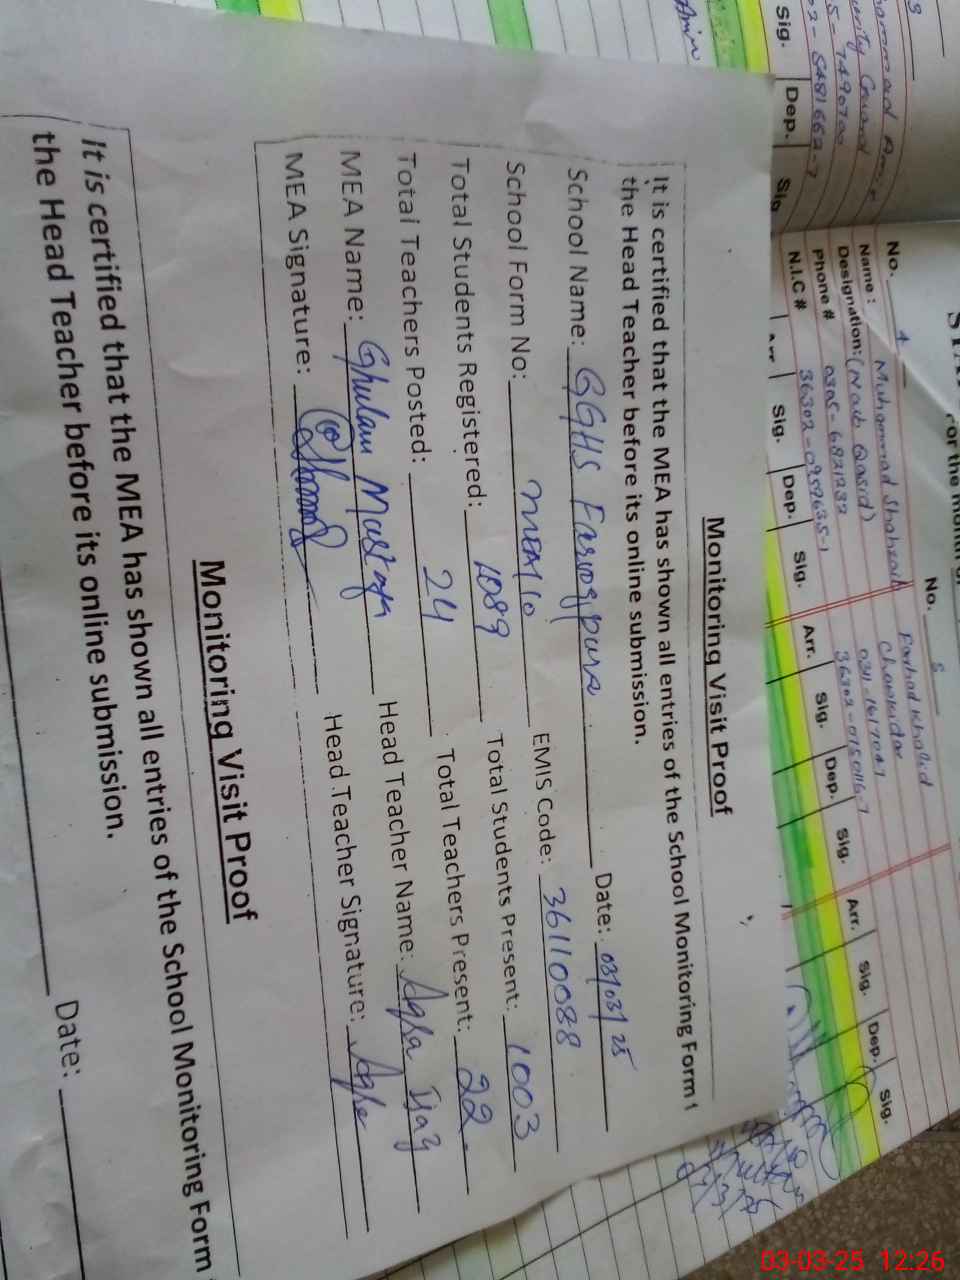 Monitoring Visit Proof
It is certified that the MEA has shown all entries of the School Monitoring Form t
the Head Teacher before its online submission.
School Name: GGHS Farooq pura Date: 03/03/25
School Form No: EMIS Code: 36110088
Total Students Registered: 1089 Total Students Present: 1003
Total Teachers Posted: 24 Total Teachers Present: 22
MEA Name: Ghulam Mustafa Head Teacher Name: Aqsa Ijaz
MEA Signature: Head Teacher Signature: Aqsa
Monitoring Visit Proof
It is certified that the MEA has shown all entries of the School Monitoring Form
the Head Teacher before its online submission.
Date:
For the month of
No. 4 No. 5
Name: Muhammad Shaheen Farhad Khalid
Designation: (Naib Qasid) Chowkidar
Phone # 0305-6821232 0311-1617047
N.I.C # 36302-0959635-1 36302-0750116-7
Arr. Sig. Dep. Sig. Arr. Sig. Dep. Sig. Arr. Sig. Dep. Sig.
Sig. Dep. Sig
03-03-25 12:26